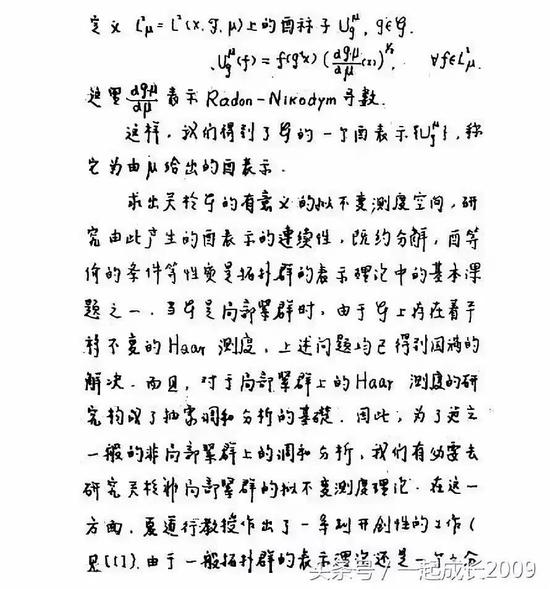 定义 L²μ=L²(X,𝒢,μ)上的酉祘子 Uᵍμ, g∈𝒢.
Uᵍμ(f)=f(g⁻¹x)(dgμ/dμ(x))^½, ∀f∈L²μ.
这里 dgμ/dμ 表示 Radon-Nikodym 导数.
这样,我们得到了𝒢的一个酉表示{Uᵍμ},称
它为由μ给出的酉表示.
求出关于𝒢的有意义的拟不变测度空间,研
究由此产生的酉表示的连续性,既约分解,酉等
价的条件等性质是拓扑群的表示理论中的基本课
题之一.当𝒢是局部紧群时,由于𝒢上存在着平
移不变的Haar 测度,上述问题均已得到圆满的
解决.而且,对于局部紧群上的Haar 测度的研
究构成了抽象调和分析的基礎.因此,为了建立
一般的非局部紧群上的调和分析,我们有必要去
研究关于非局部紧群的拟不变测度理论.在这一
方面,夏道行教授作出了一系列开创性的工作(
见[1]).由于一般拓扑群的表示理论还是一个
头条号/一起成长2009